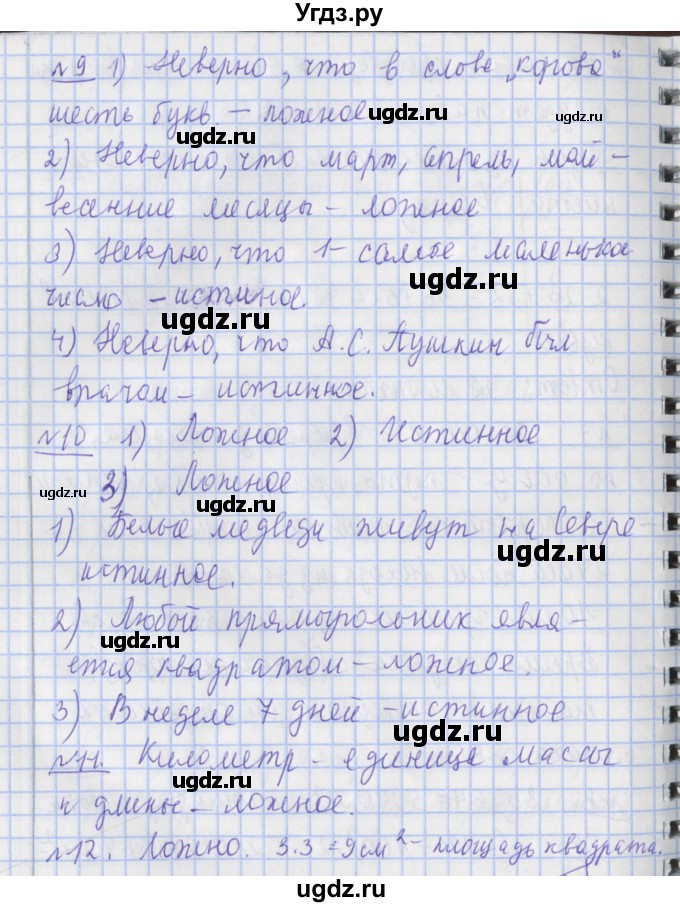 Угдз.ру
№9 1) Неверно, что в слове „корова“
шесть букв – ложное
ugdz.ru ugdz.ru
2) Неверно, что март, апрель, май –
весенние месяцы – ложное
ugdz.ru
3) Неверно, что 1 – самое маленькое
число – истиное.
ugdz.ru ugdz.ru
4) Неверно, что А.С. Пушкин был
врачом – истинное.
ugdz.ru
№10 1) Ложное 2) Истинное
3) Ложное
ugdz.ru ugdz.ru
1) Белые медведи живут на Севере –
истинное.
ugdz.ru
2) Любой прямоугольник явля-
ugdz.ru
ется квадратом – ложное.
3) В неделе 7 дней – истинное
ugdz.ru
№11. Километр – единица массы
ugdz.ru
и длины – ложное.
ugdz.ru
№12. Ложно. 3·3=9см² – площадь квадрата.
ugdz.ru